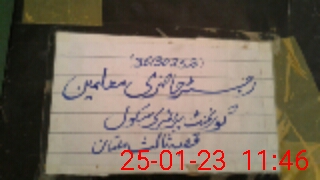 (36130258)
رجسٹر حاضری معلمین
گورنمنٹ پرائمری سکول
ملتان
25-01-23 11:46